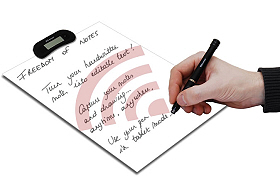 FREEDOM OF NOTES
Turn your handwritten
notes into editable text!
Capture your notes
and drawing...
anytime, anywhere.
Use your pen
in tablet mode...